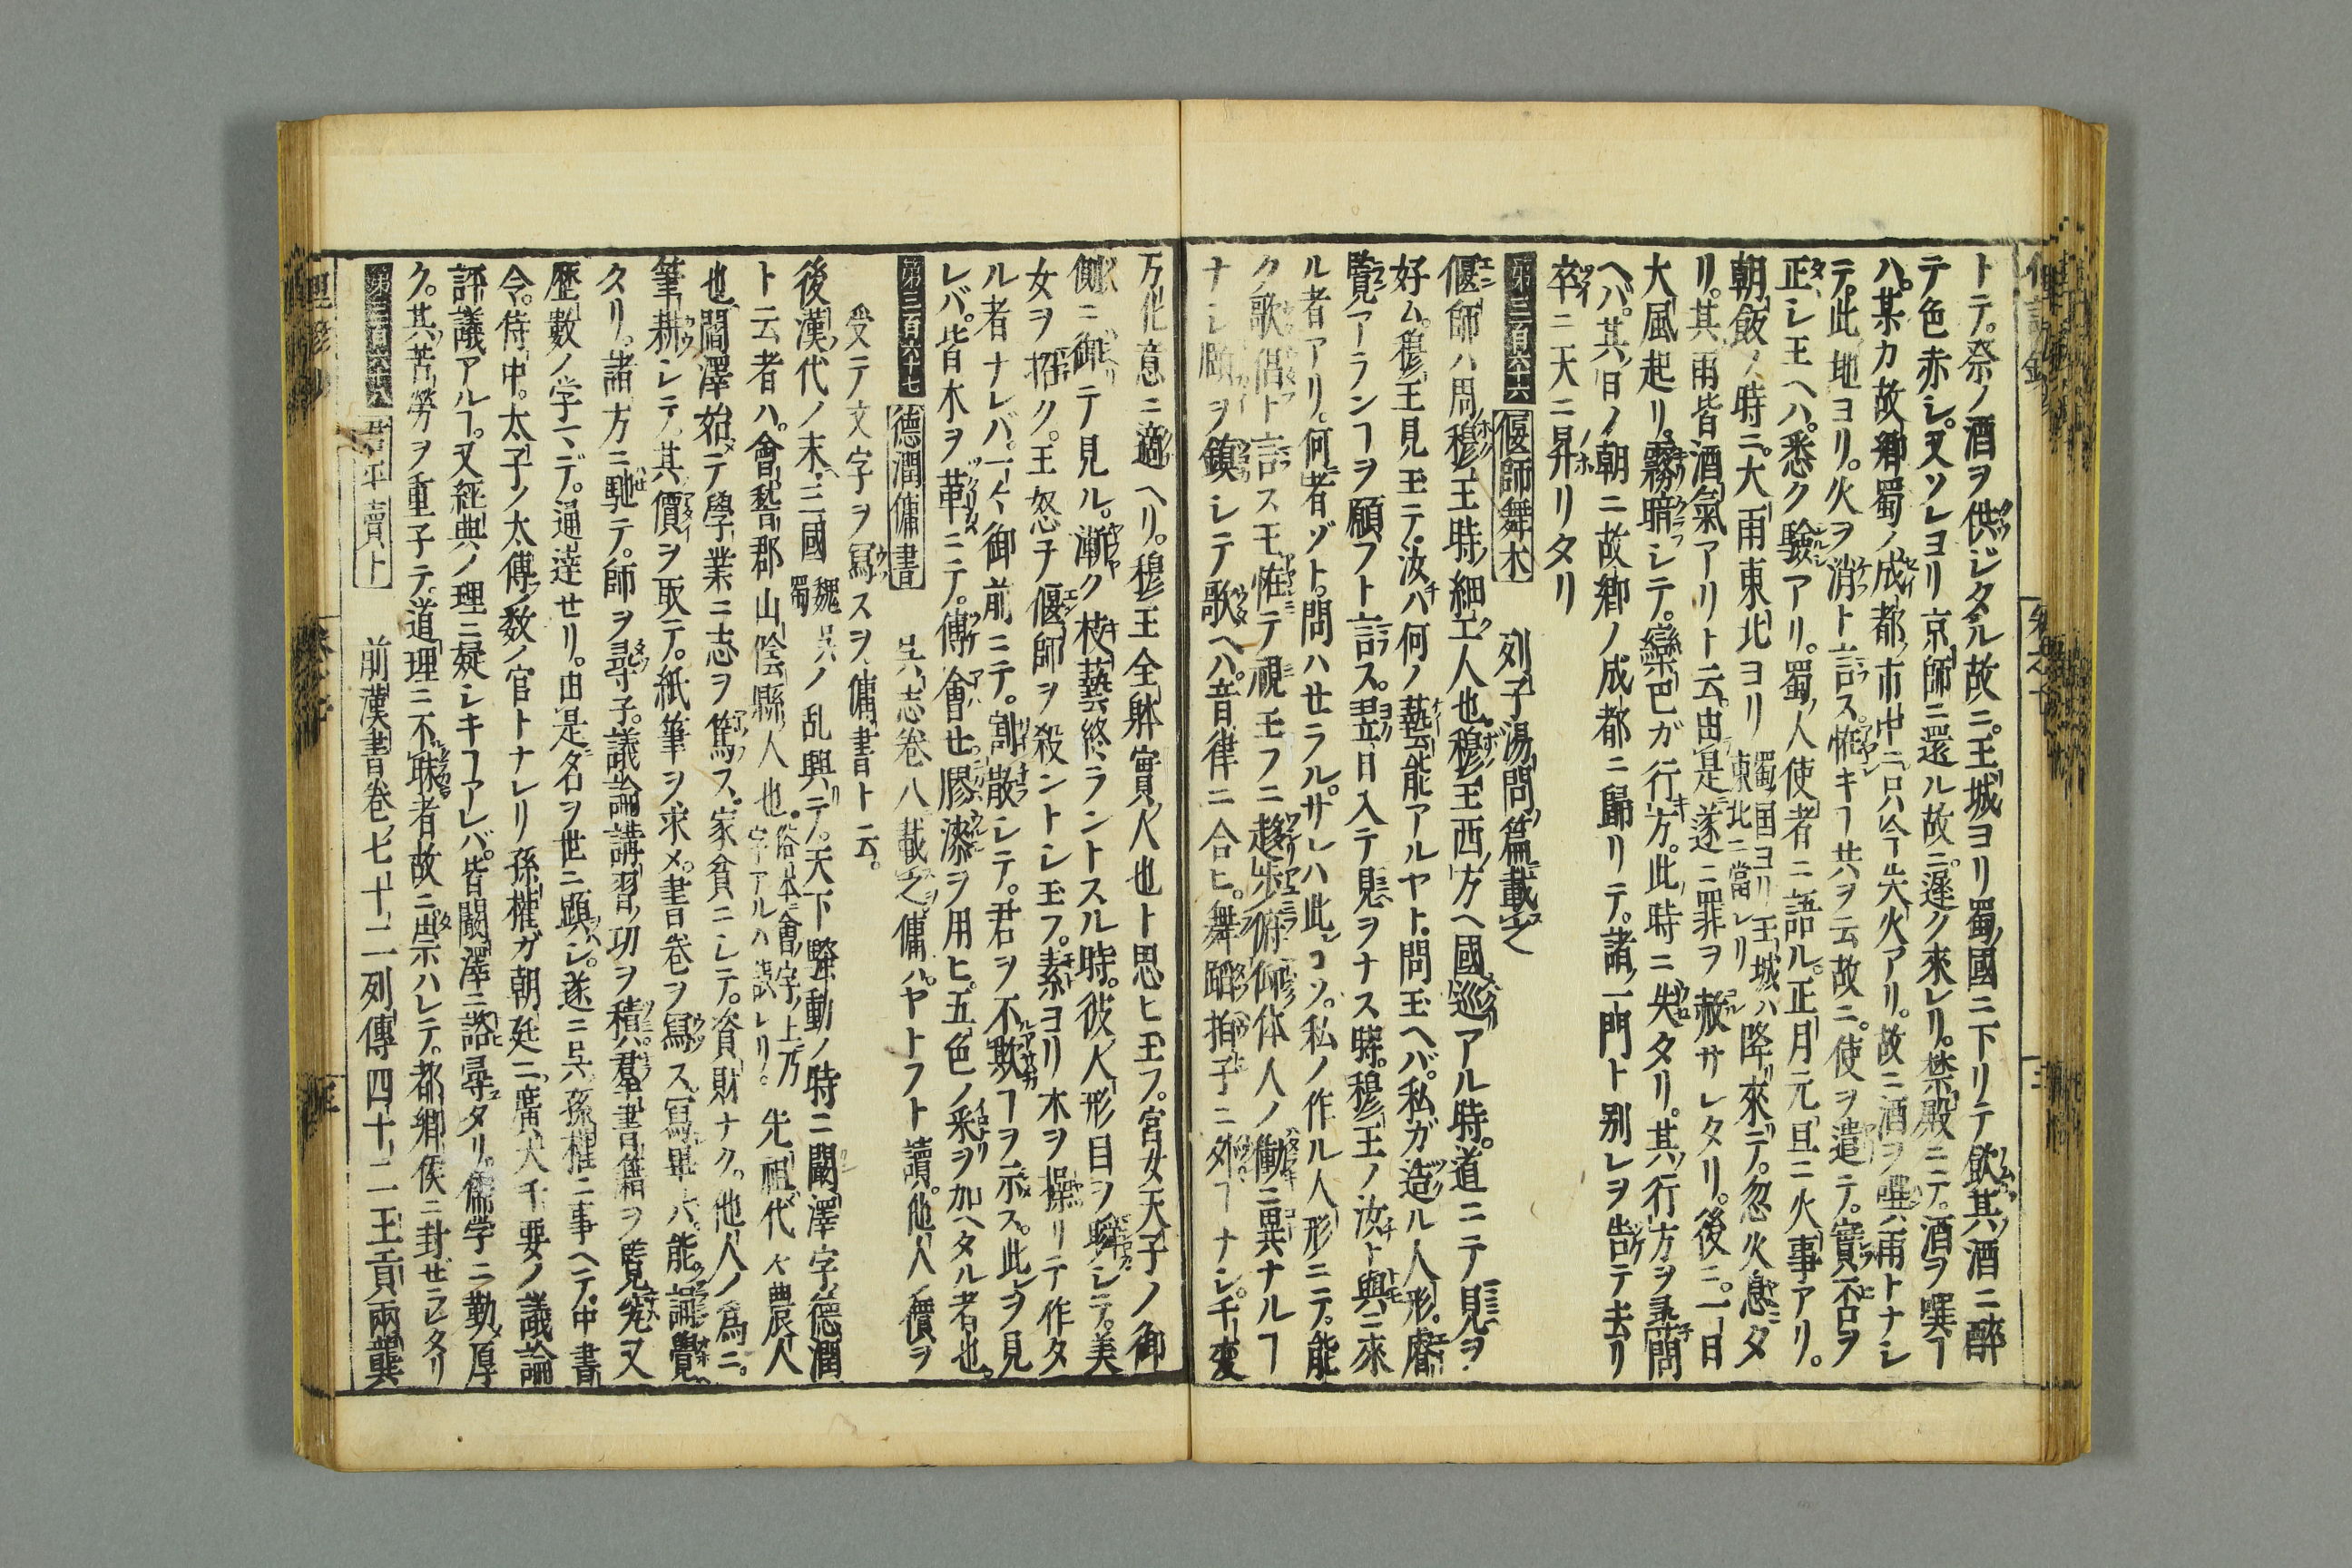 トテ。奈ノ酒ヲ供ジタル故ニ。王城ヨリ蜀國ニ下リテ飲其酒ニ醉
テ色赤シ。又ソレヨリ京師ニ還ル故ニ。遲ク來レリ。禁殿ニテ。酒ヲ噀ヿ
ハ。某カ故鄉蜀ノ成都市中ニ只今失火アリ。故ニ酒ヲ噀雨トナシ
テ。此地ヨリ。火ヲ消ト言ス。恠キヿ共ヲ云故ニ。使ヲ遣テ。實否ヲ
正シ王ヘハ。悉ク驗アリ。蜀人使者ニ語ル。正月元旦ニ火事アリ。
朝飯ノ時ニ。大雨東北ヨリ 蜀国ヨリ王城ハ東北ニ當レリ 降來テ。忽火息タ
リ。其雨皆酒氣アリト云。由是遂ニ罪ヲ赦サレタリ。後ニ。一日
大風起リ。霧暗シテ。欒巴ガ行方。此時ニ失タリ。其行方ヲ尋問
ヘバ。其日ノ朝ニ故鄉ノ成都ニ歸リテ。諸一門ト别レヲ告テ去リ
卒ニ天ニ昇リタリ
第三百六十六 偃師舞木 列子湯問篇載之
偃師ハ周穆王時細工人也。穆王西方ヘ國巡アル時。道ニテ見ヲ
好ム。穆王見玉テ。汝ハ何ノ藝能アルヤト。問玉ヘバ。私ガ造ル人形。磨
覽アランヿヲ願フト言ス。翌日入テ見ヲナス時。穆王ノ汝ト與ニ來
ル者アリ。何者ゾト。問ハセラル。サレハ此コソ。私ノ作ル人形ニテ。能
ク歌倡ト言ス王恠テ視玉フニ趨步俯仰体人ノ働ニ異ナルヿ
ナシ頤ヲ鎮シテ歌ヘハ。音律ニ合ヒ。舞蹈拍子ニ外ヿナシ。千變
万化意ニ適ヘリ。穆王全躰實ノ人也ト思ヒ玉フ。宮女天子ノ御
側ニ御テ見ル。漸ク枝藝終ラントスル時。彼人形目ヲ瞬シテ。美
女ヲ招ク。王怒チ偃師ヲ殺ントシ玉フ。素ヨリ木ヲ操リテ作タ
ル者ナレバ。一々御前ニテ。割散シテ。君ヲ不欺ヿヲ示ス。此ヲ見
レバ。皆木ヲ革ニテ。傅會セ膠漆ヲ用ヒ。五色ノ釆ヲ加ヘタル者也
第三百六十七 德潤傭書 呉志卷八載之傭ハ。ヤトフト讀。他人ノ價ヲ
受テ文字ヲ寫スヲ。傭書ト云。
後漢代ノ末三國 魏呉蜀 ノ乱興テ。天下騷動ノ時ニ闞澤字德潤
ト云者ハ。會嵇郡山陰縣人也。俗本會字上乃字アルハ誤レリ。先祖代々農人
也。闞澤始テ學業ニ志ヲ篤ス。家貧ニシテ。資財ナク。他人ノ爲ニ。
筆耕シテ。其價ヲ取テ。紙筆ヲ求メ。書卷ヲ寫ス。寫畢ハ。能誦覺
タリ。諸方ニ馳テ。師ヲ尋子。議論講習ノ功ヲ積。羣書籍ヲ覽究又
歷數ノ学マデ。通達セリ。由是名ヲ世ニ顯シ。遂ニ呉孫權ニ事ヘテ。中書
令。侍中。太子ノ太傅敎ノ官トナレリ孫權ガ朝廷ニ。席大千要ノ議論
評議アルヿ。又経典ノ理ニ疑シキヿアレバ。皆闞澤ニ諮尋タリ。儒学ニ勤厚
ク。其苦勞ヲ重子テ。道理ニ不昧者故ニ崇ハレテ。都鄉侯ニ封ゼラレタリ
第三百六十八 君平賣卜 前漢書卷七十二列傳四十二王貢兩龔